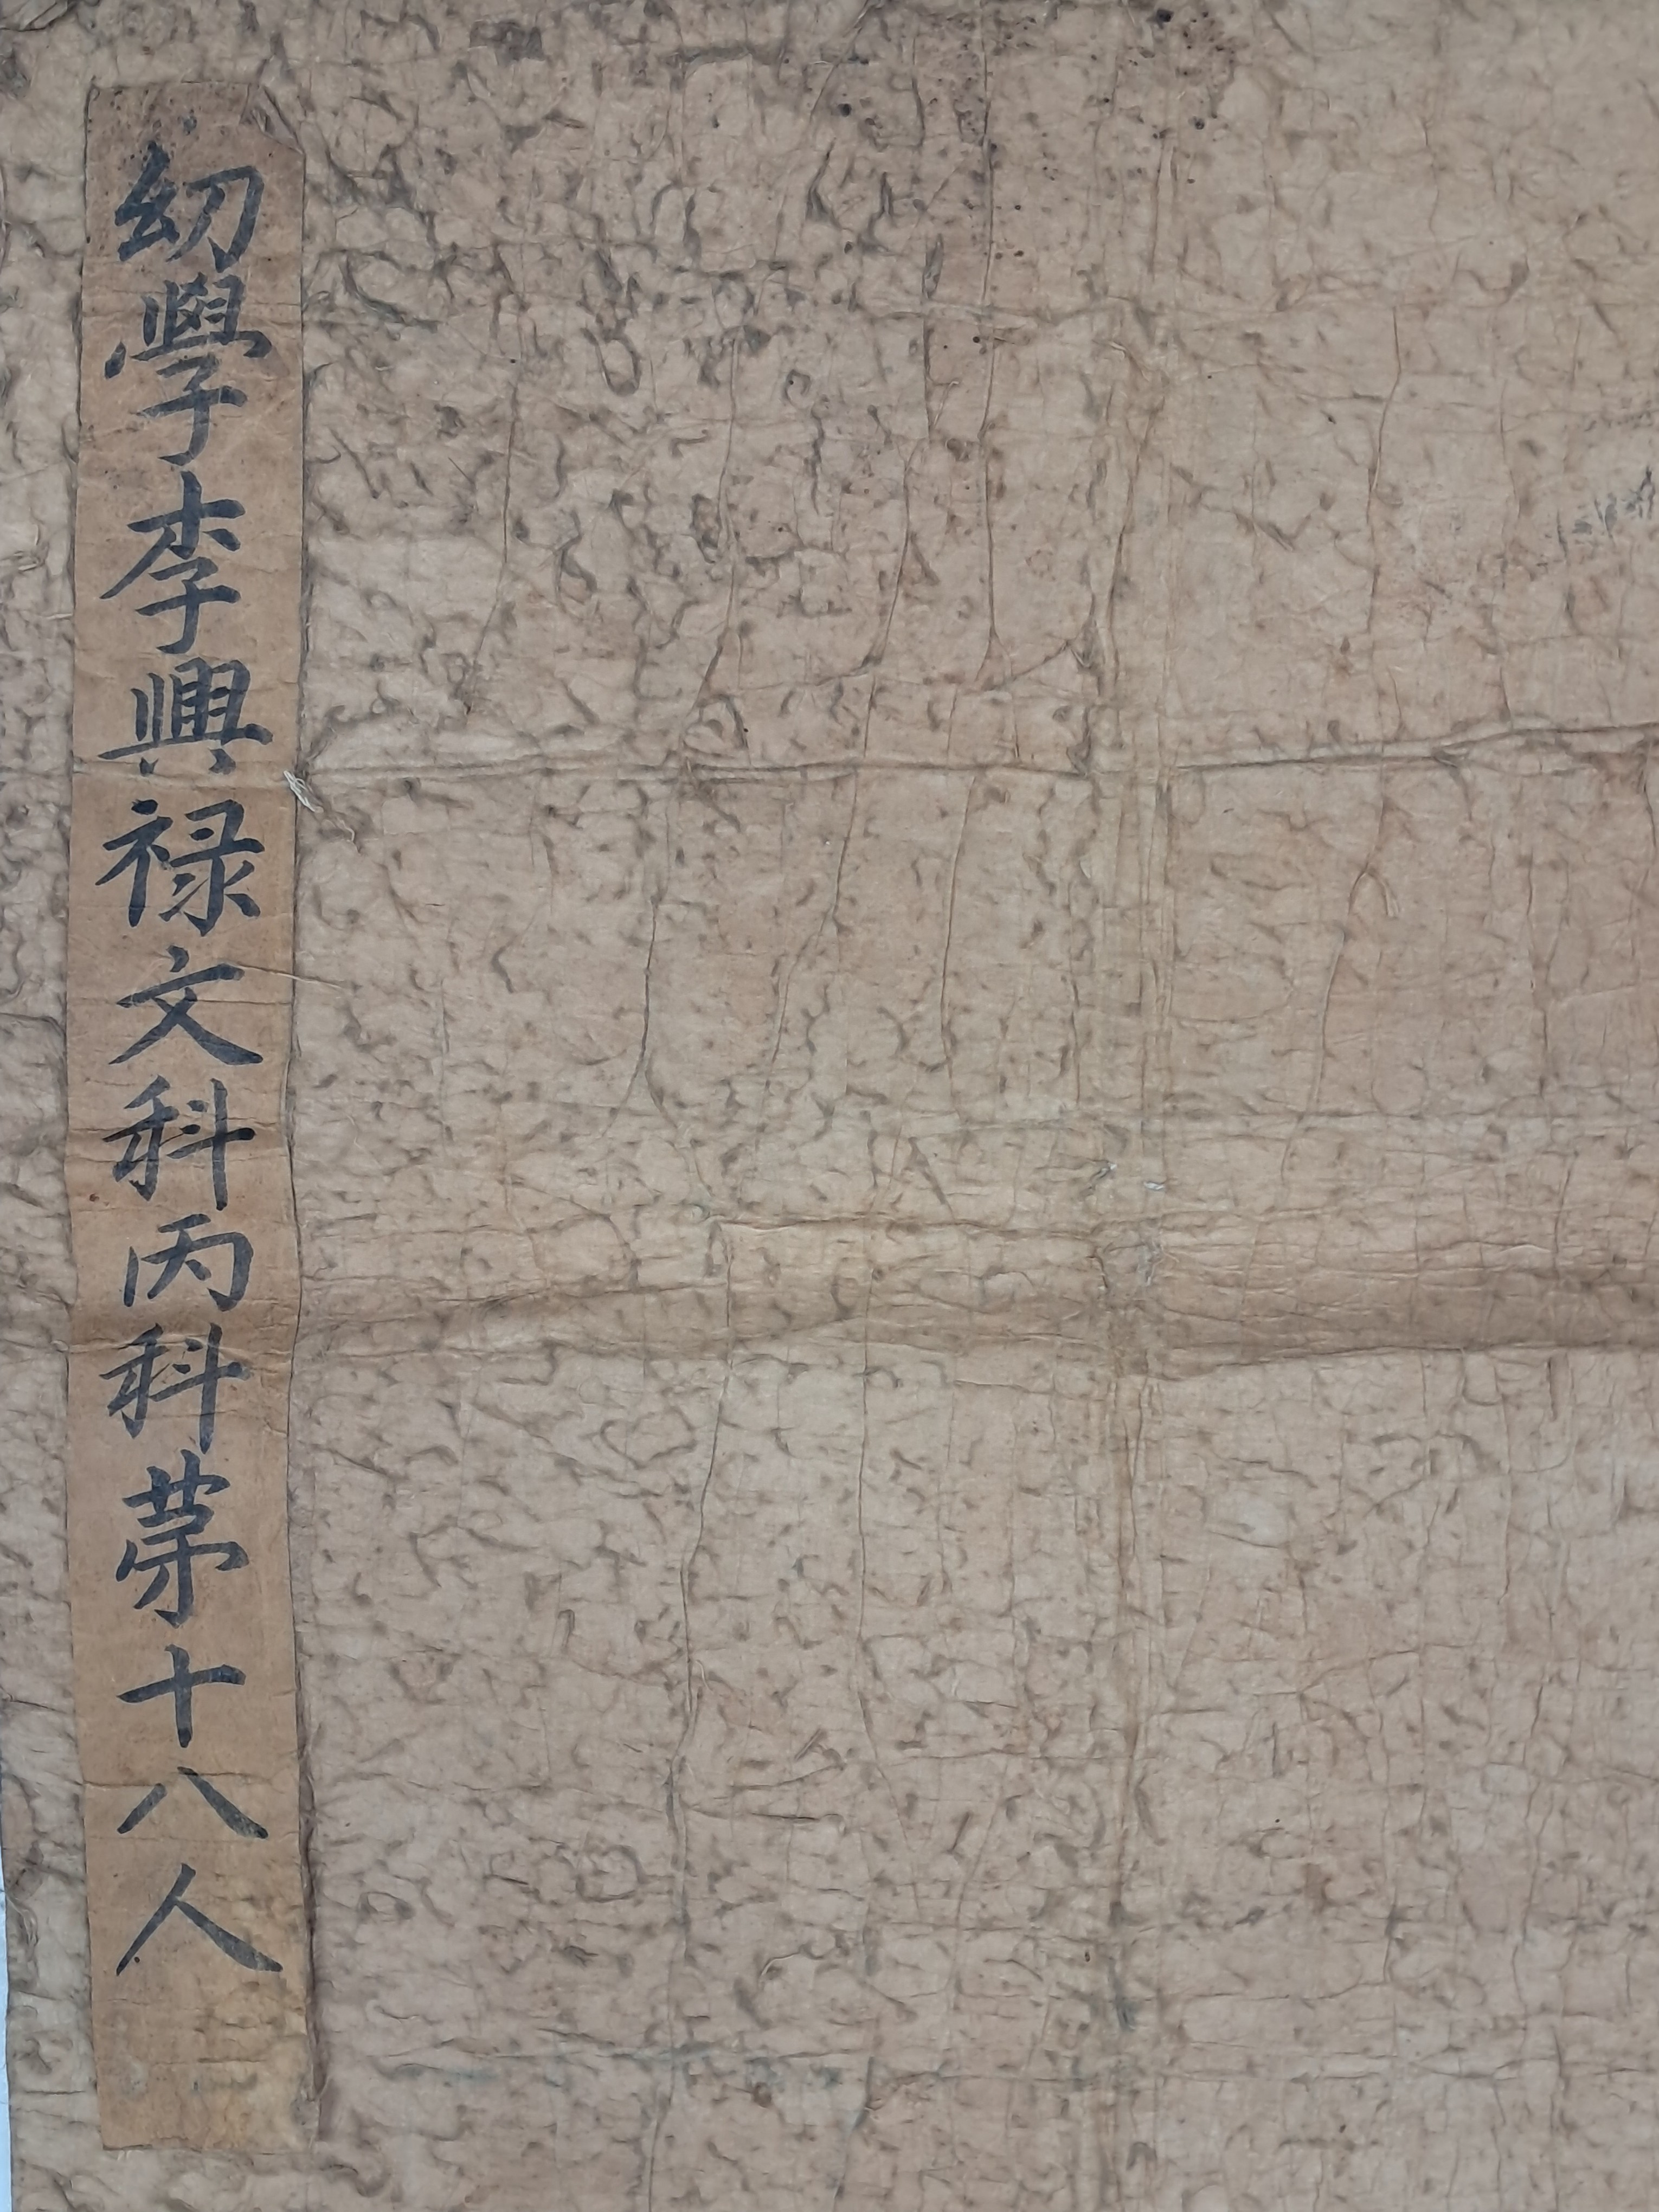 幼學李興禄文科丙科苐十八人